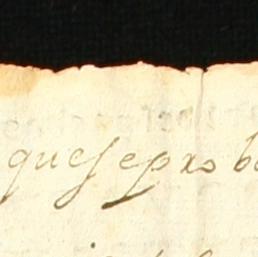 que se proba